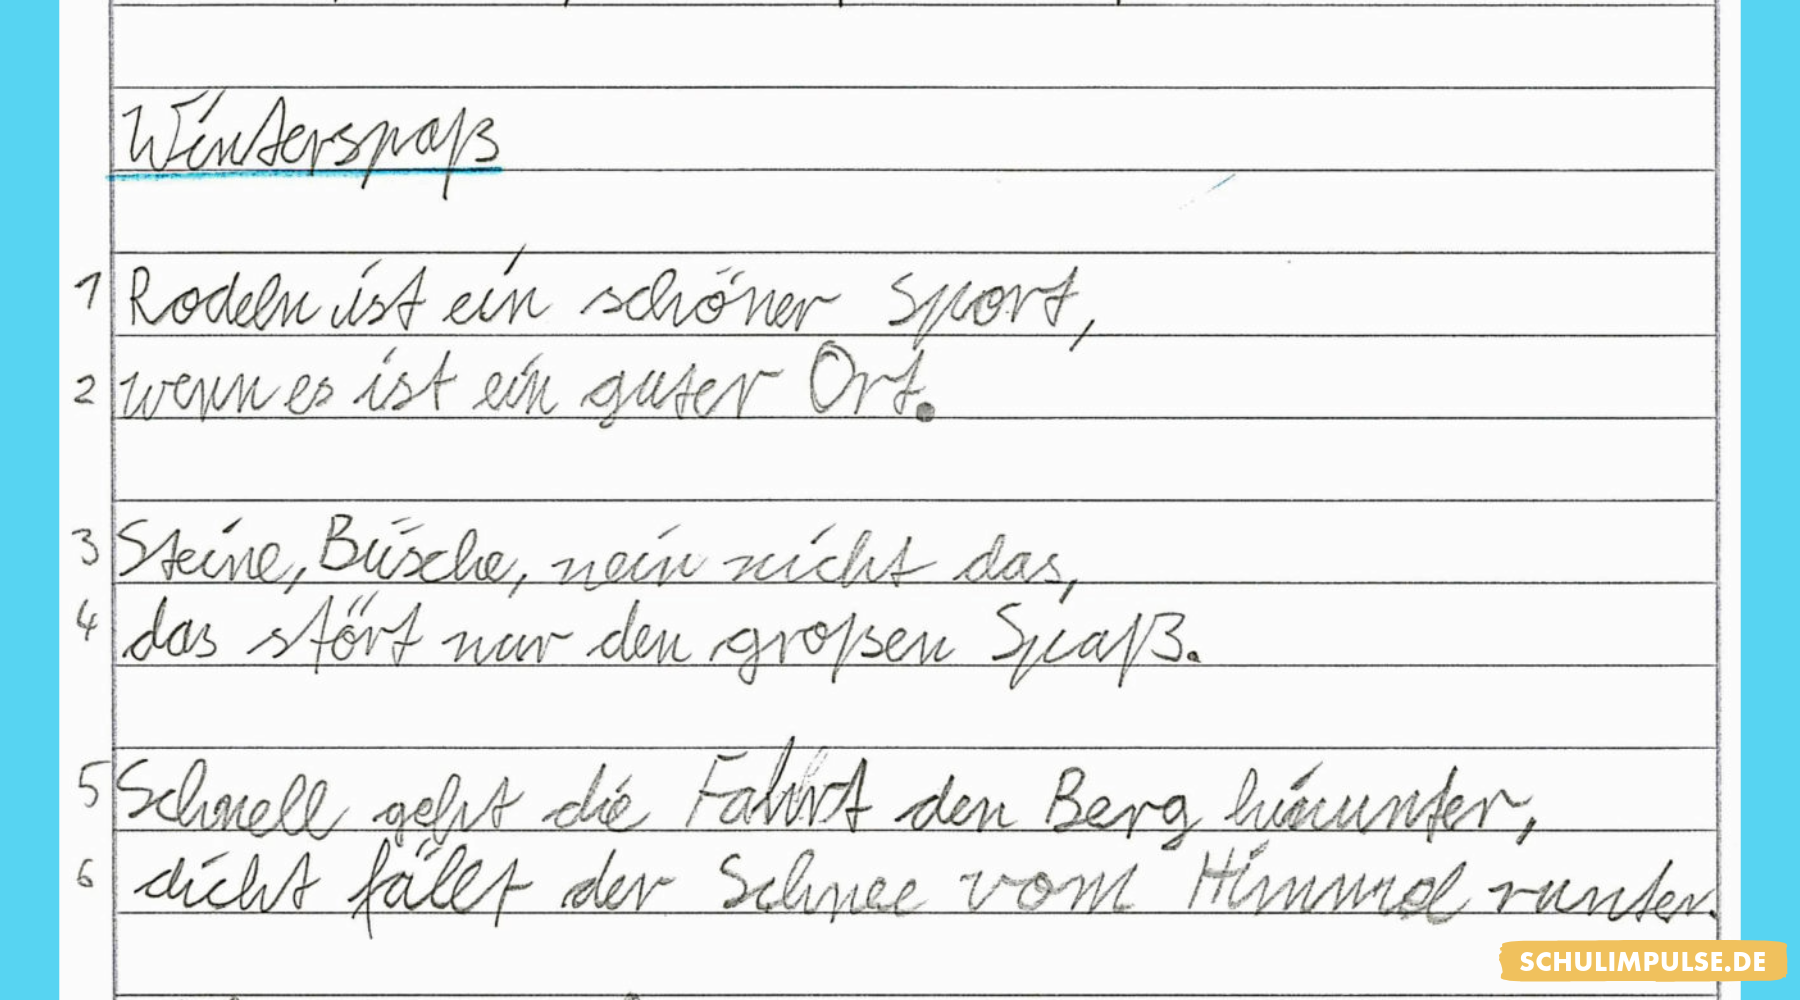 Winterspaß
1 Rodeln ist ein schöner Sport,
2 wenn es ist ein guter Ort.
3 Steine, Büsche, nein nicht das,
4 das stört nur den großen Spaß.
5 Schnell geht die Fahrt den Berg hinunter,
6 dicht fällt der Schnee vom Himmel runter.
SCHULIMPULSE.DE